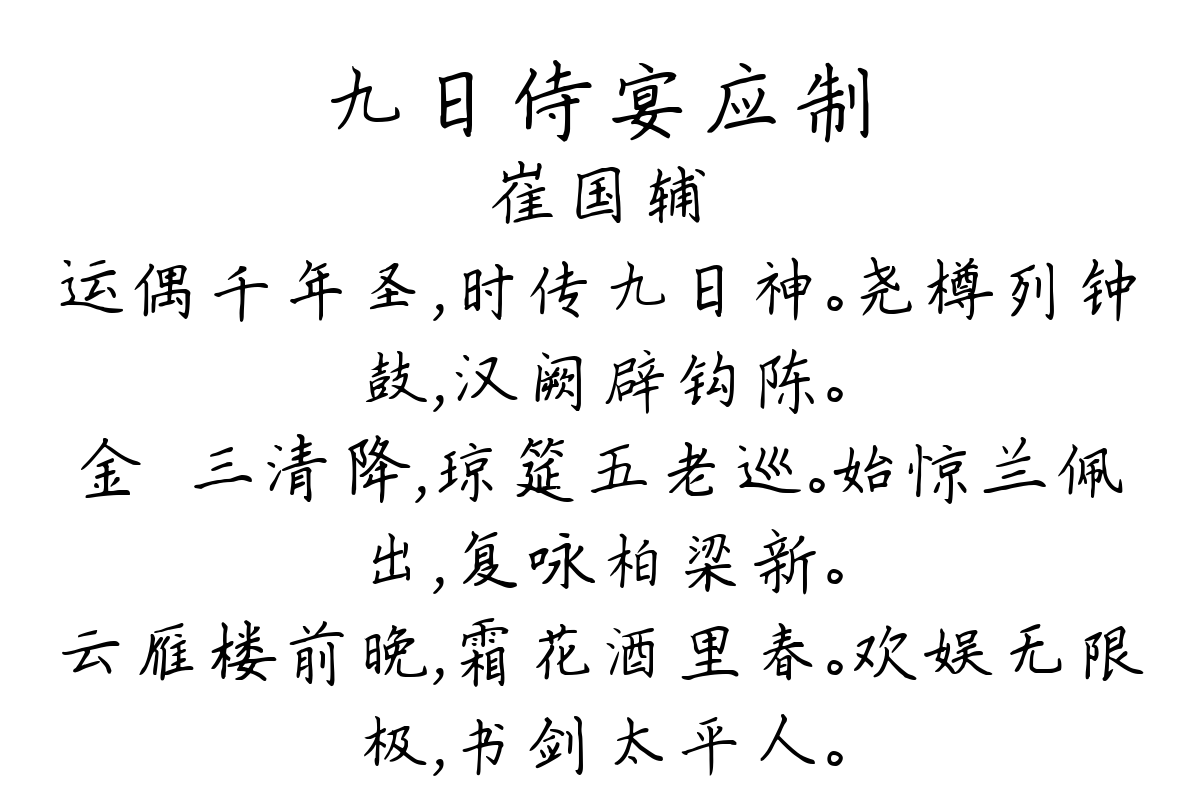 九日侍宴应制
崔国辅
运偶千年圣,时传九日神。尧樽列钟
鼓,汉阙辟钩陈。
金 三清降,琼筵五老巡。始惊兰佩
出,复咏柏梁新。
云雁楼前晚,霜花酒里春。欢娱无限
极,书剑太平人。